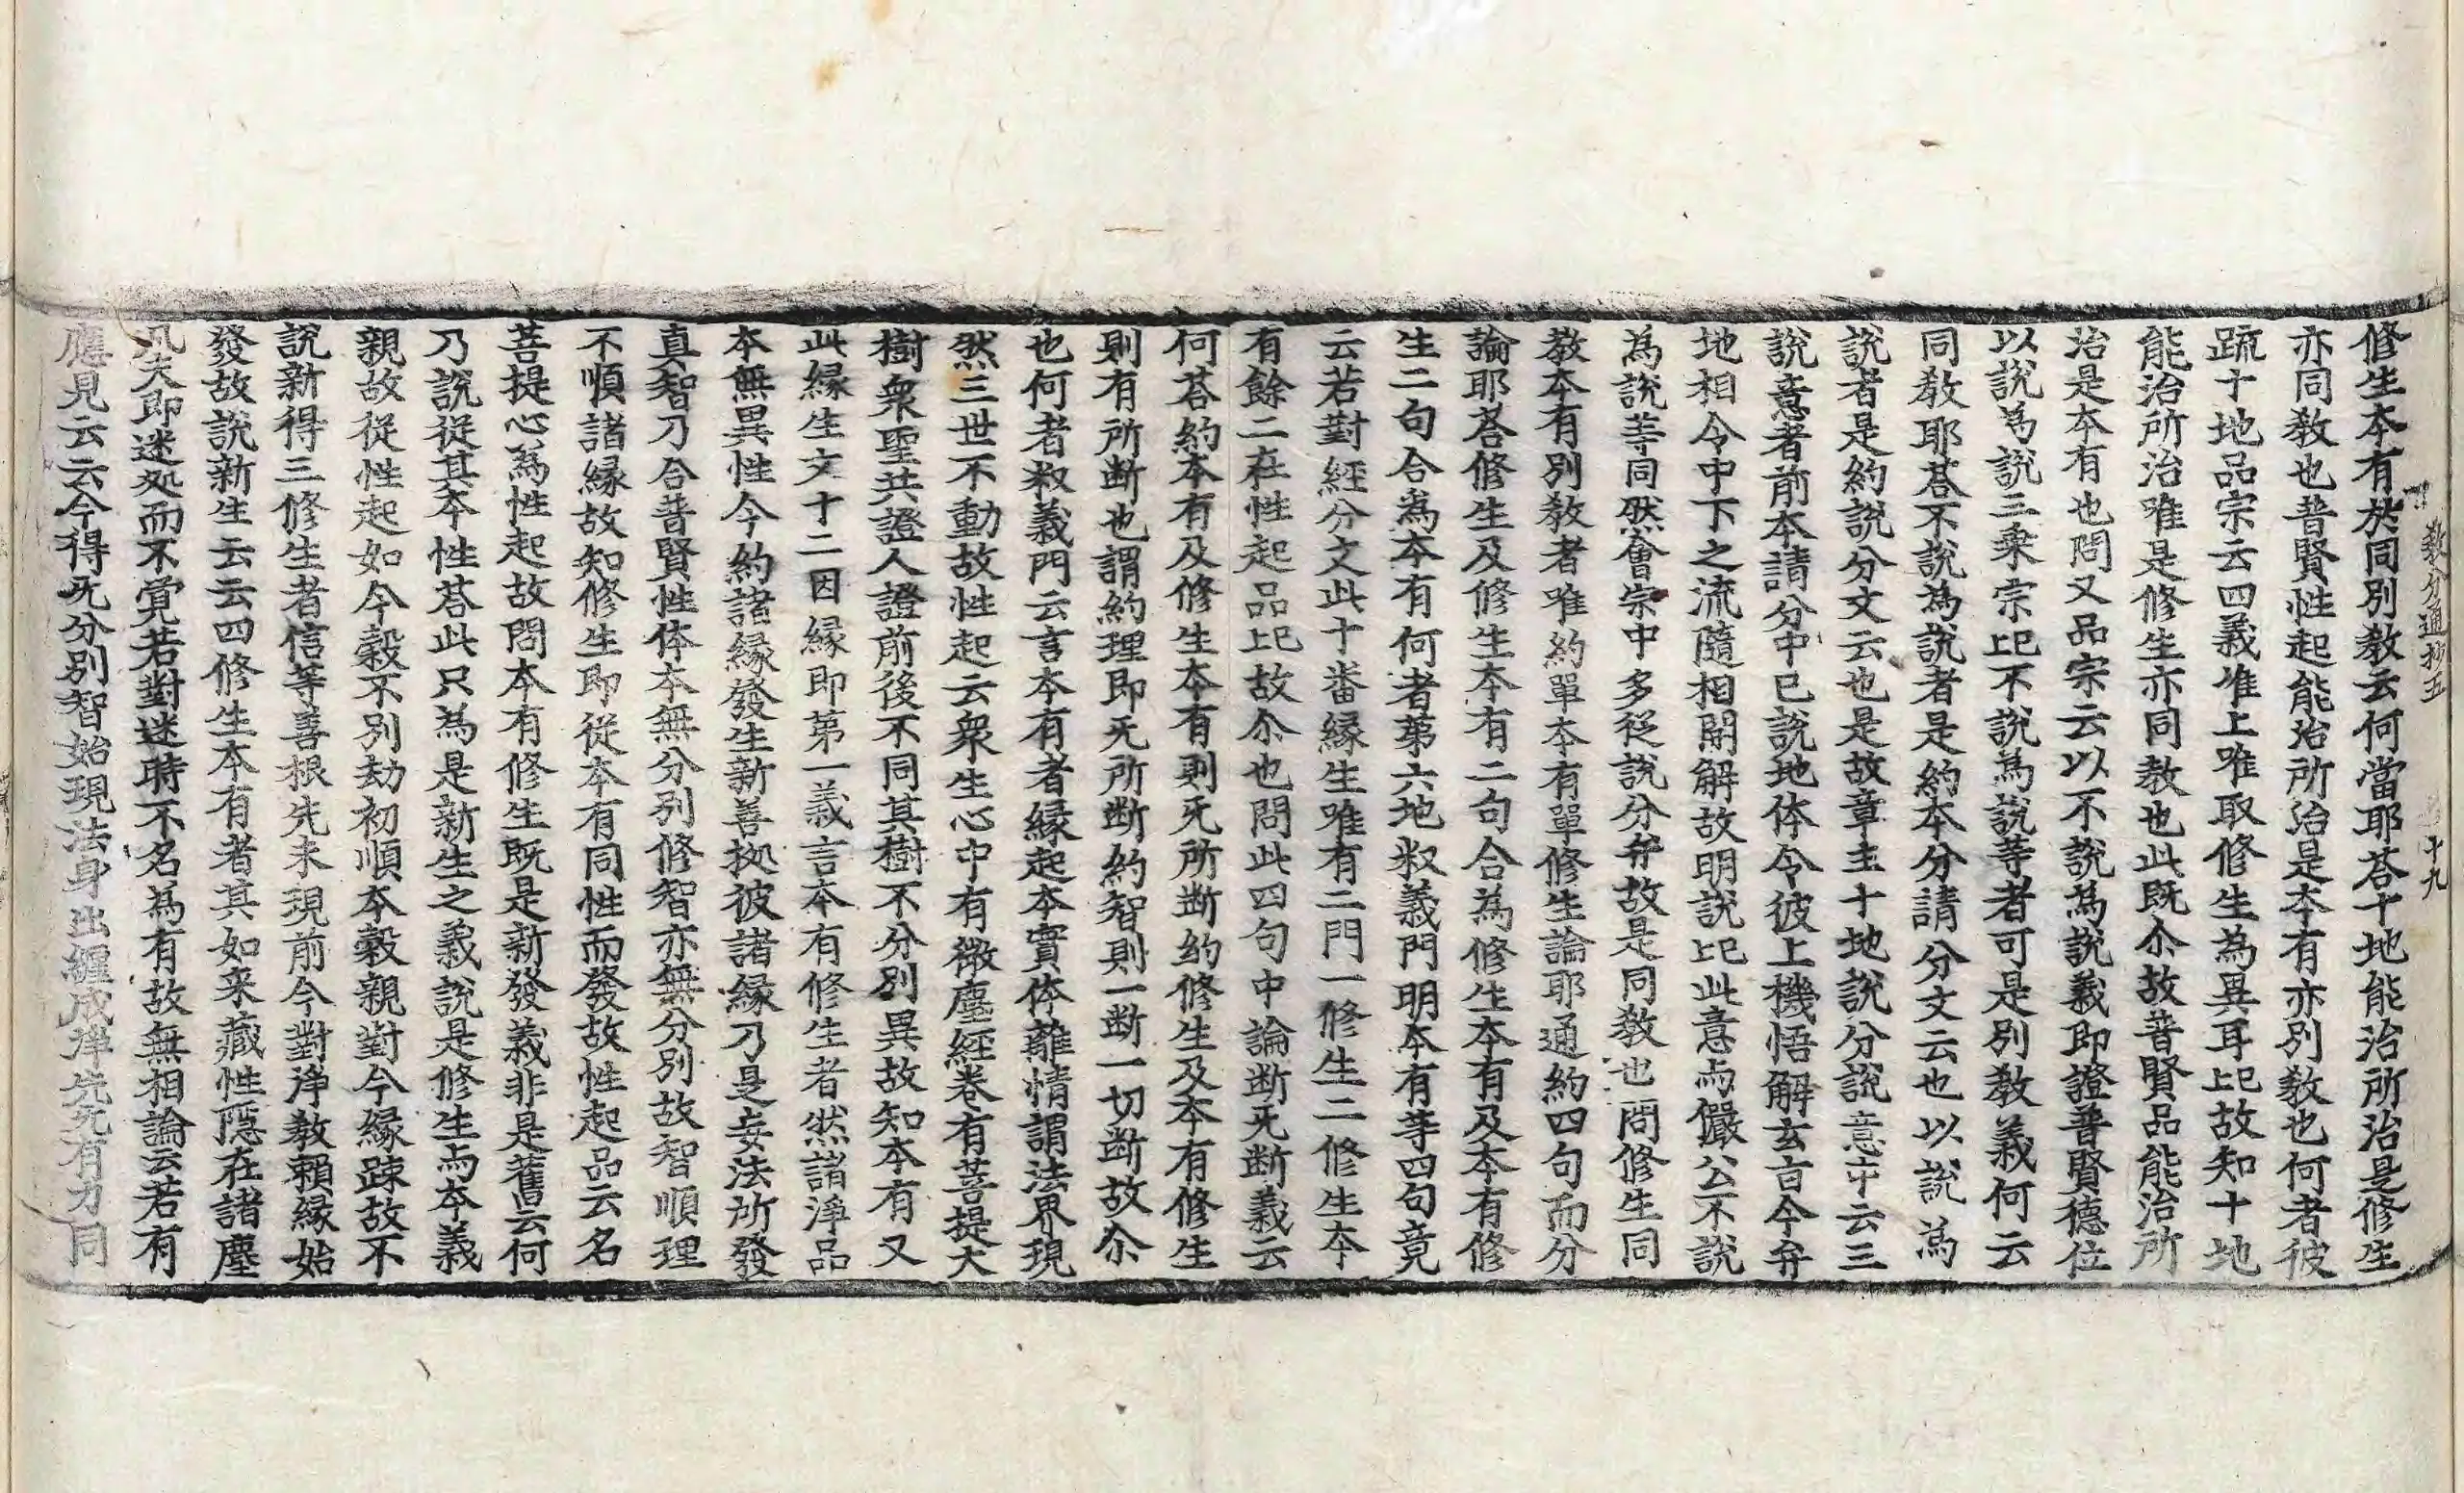 修生本有於同別教云何當耶荅十地能治所治是修生
亦同教也普賢性起能治所治是本有亦別教也何者彼
䟽十地品宗云四義唯上唯取修生為異耳㠯故知十地
能治所治唯是修生亦同教也此既尒故普賢品能治所
治是本有也問又品宗云以不說為說義即證普賢德位
以說為說三乘宗㠯不說為說等者可是別教義何云
同教耶荅不說為說者是約本分請分文云也以說為
說者是約說分文云也是故章主十地說分說意中云三
說意者前本請分中已說地体令彼上機悟解玄旨今弁
地相令中下之流隨相開解故明說㠯此意与儼公不說
為說等同然會宗中多從說分弁故是同教也問修生同
教本有別教者唯約單本有單修生論耶通約四句而分
論耶荅修生及修生本有二句合為修生本有及本有修
生二句合為本有何者第六地釈義門明本有等四句竟
云若對經分文此十番緣生唯有二門一修生二修生本
有餘二在性起品㠯故尒也問此四句中論断无断義云
何荅約本有及修生本有則无所断約修生及本有修生
則有所断也謂約理即无所断約智則一断一切断故尒
也何者釈義門云言本有者緣起本實体離情謂法界現
然三世不動故性起云衆生心中有微塵經卷有菩提大
樹衆聖共證人證前後不同其樹不分別異故知本有又
此緣生文十二因緣即第一義言本有修生者然諸淨品
本無異性今約諸緣發生新善拠彼諸緣乃是妄法所發
真智乃合普賢性体本無分別修智亦無分別故智順理
不順諸緣故知修生即從本有同性而發故性起品云名
菩提心爲性起故問本有修生既是新發義非是舊云何
乃說從其本性荅此只為是新生之義說是修生与本義
親故從性起如今穀不別劫初順本穀親對今緣踈故不
說新得三修生者信等善根先未現前今對淨教賴緣始
發故說新生云云四修生本有者其如来藏性隱在諸塵
凡夫即迷処而不覺若對迷時不名為有故無相論云若有
應見云云今得无分別智始現法身出纏成淨先无有力同
教分通抄五 十九